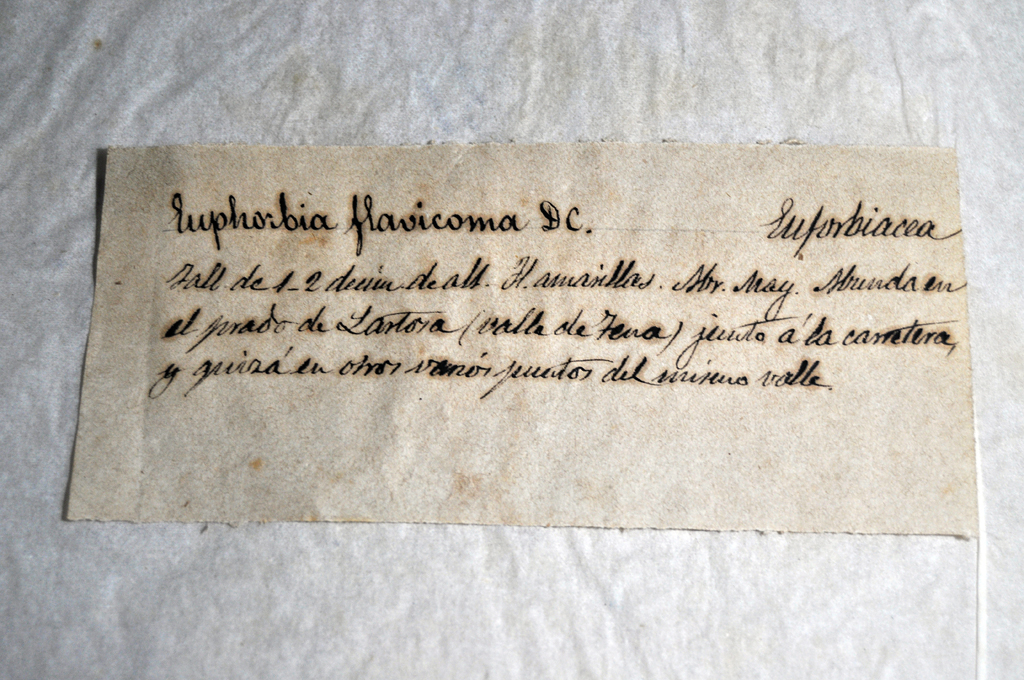 Euphorbia flavicoma DC. Euforbiacea
Tall. de 1-2 decím. de alt. Fl. amarillas. Abr. May. Abunda en
el prado de Lartosa (valle de Tena) junto á la carretera,
y quizá en otros varios puntos del mismo valle.